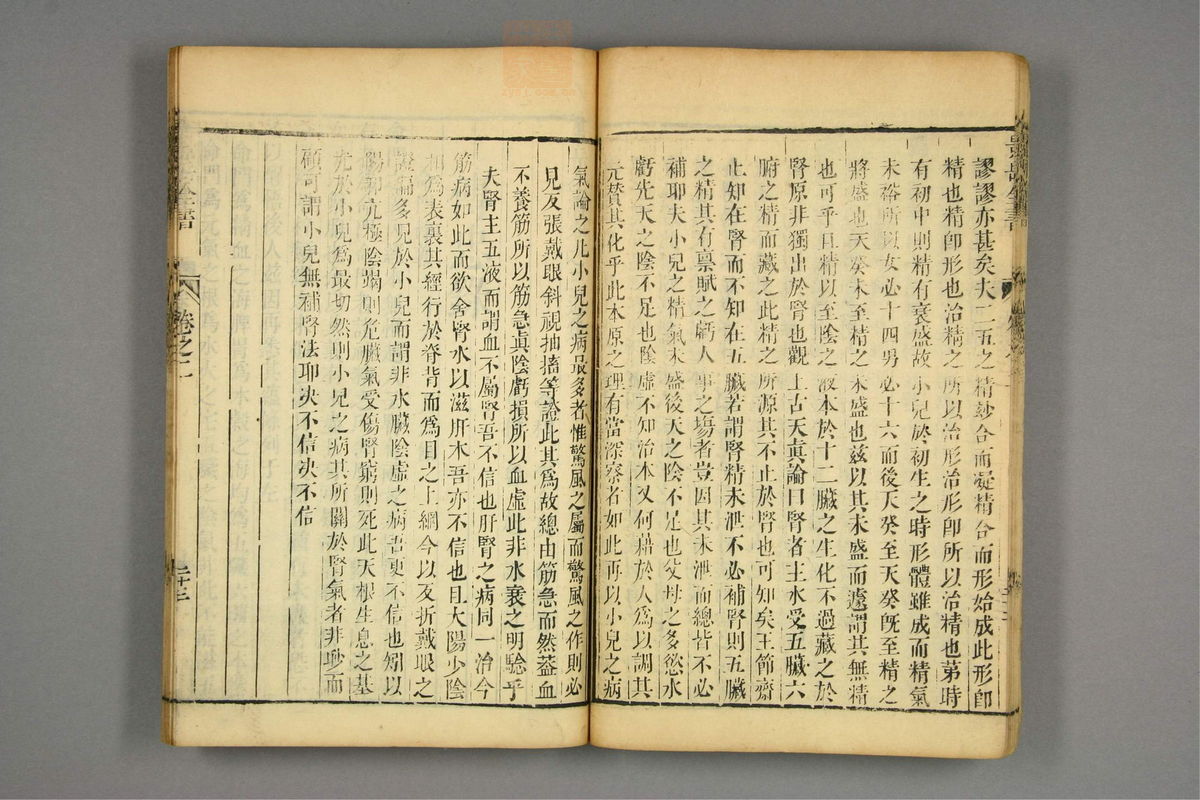 謬謬亦甚矣夫二五之精妙合而凝精合而形始成此形卽
精也精卽形也治精之所以治形治形卽所以治精也第時
有初中則精有衰盛故小兒於初生之時形體雖成而精氣
未裕所以女必十四男必十六而後天癸至天癸旣至精之
將盛也天癸未至精之未盛也兹以其未盛而遽謂其無精
也可乎且精以至陰之液本於十二臟之生化不過藏之於
腎原非獨出於腎也觀上古天眞論曰腎者主水受五臟六
腑之精而藏之此精之所源其不止於腎也可知矣王節齋
止知在腎而不知在五臟若謂腎精未泄不必補腎則五臟
之精其有禀賦之虧人事之塲者豈因其未泄而總皆不必
補耶夫小兒之精氣未盛後天之陰不足也父母之多慾水
虧先天之陰不足也陰虛不知治本又何藉於人爲以調其
元贊其化乎此本原之理有當深察者如此再以小兒之病
氣論之凡小兒之病最多者惟驚風之屬而驚風之作則必
見反張戴眼斜視抽搐等證此其爲故總由筋急而然葢血
不養筋所以筋急眞陰虧損所以血虛此非水衰之明騐乎
夫腎主五液而謂血不屬腎吾不信也肝腎之病同一治今
筋病如此而欲舍腎水以滋肝木吾亦不信也且太陽少陰
相爲表裏其經行於脊背而爲目之上網今以反折戴眼之
證偏多見於小兒而謂非水臟陰虛之病吾更不信也矧以
陽邪亢極陰竭則危臟氣受傷腎窮則死此天根生息之基
尤於小兒爲最切然則小兒之病其所關於腎氣者非眇而
顧可謂小兒無補腎法耶决不信决不信
景岳全書
卷之二
二十三